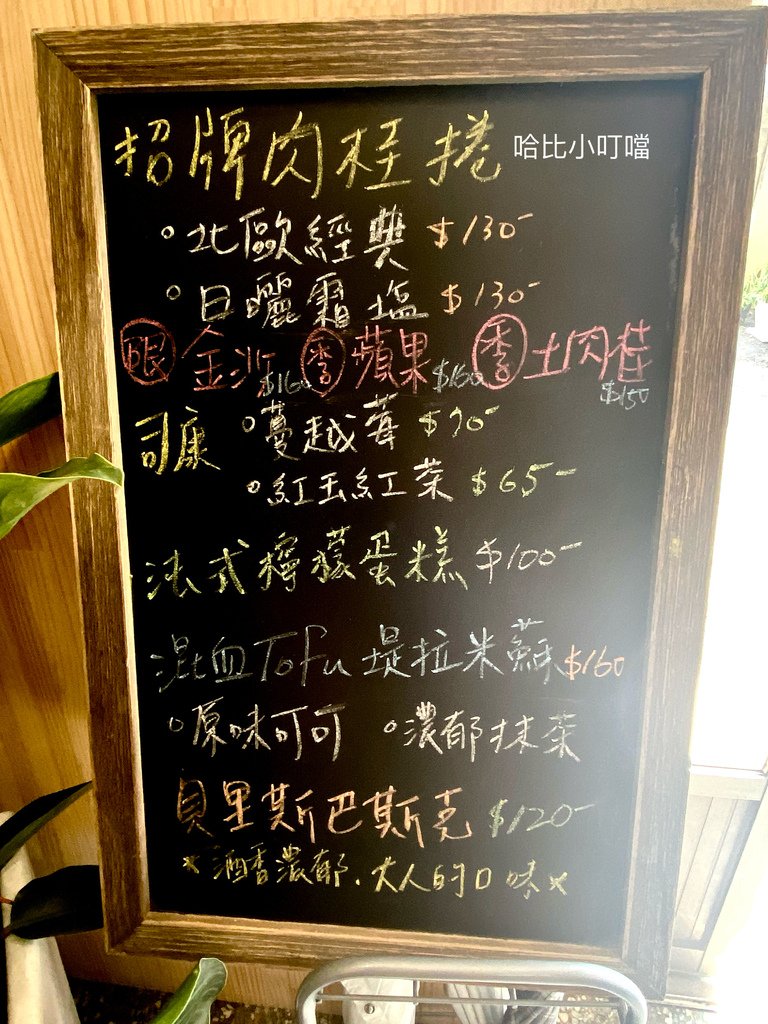 招牌肉桂捲
哈比小叮噹
北歐經典 $130-
日曬霜塩 $130-
限 金沙 $160 季 蘋果 $160 季 土肉桂 $150
司康 蔓越莓 $70-
紅玉紅茶 $65-
法式檸檬蛋糕 $100-
混血Tofu 堤拉米蘇 $160
原味可可 濃郁抹茶
貝里斯巴斯克 $120-
*酒香濃郁.大人的口味*